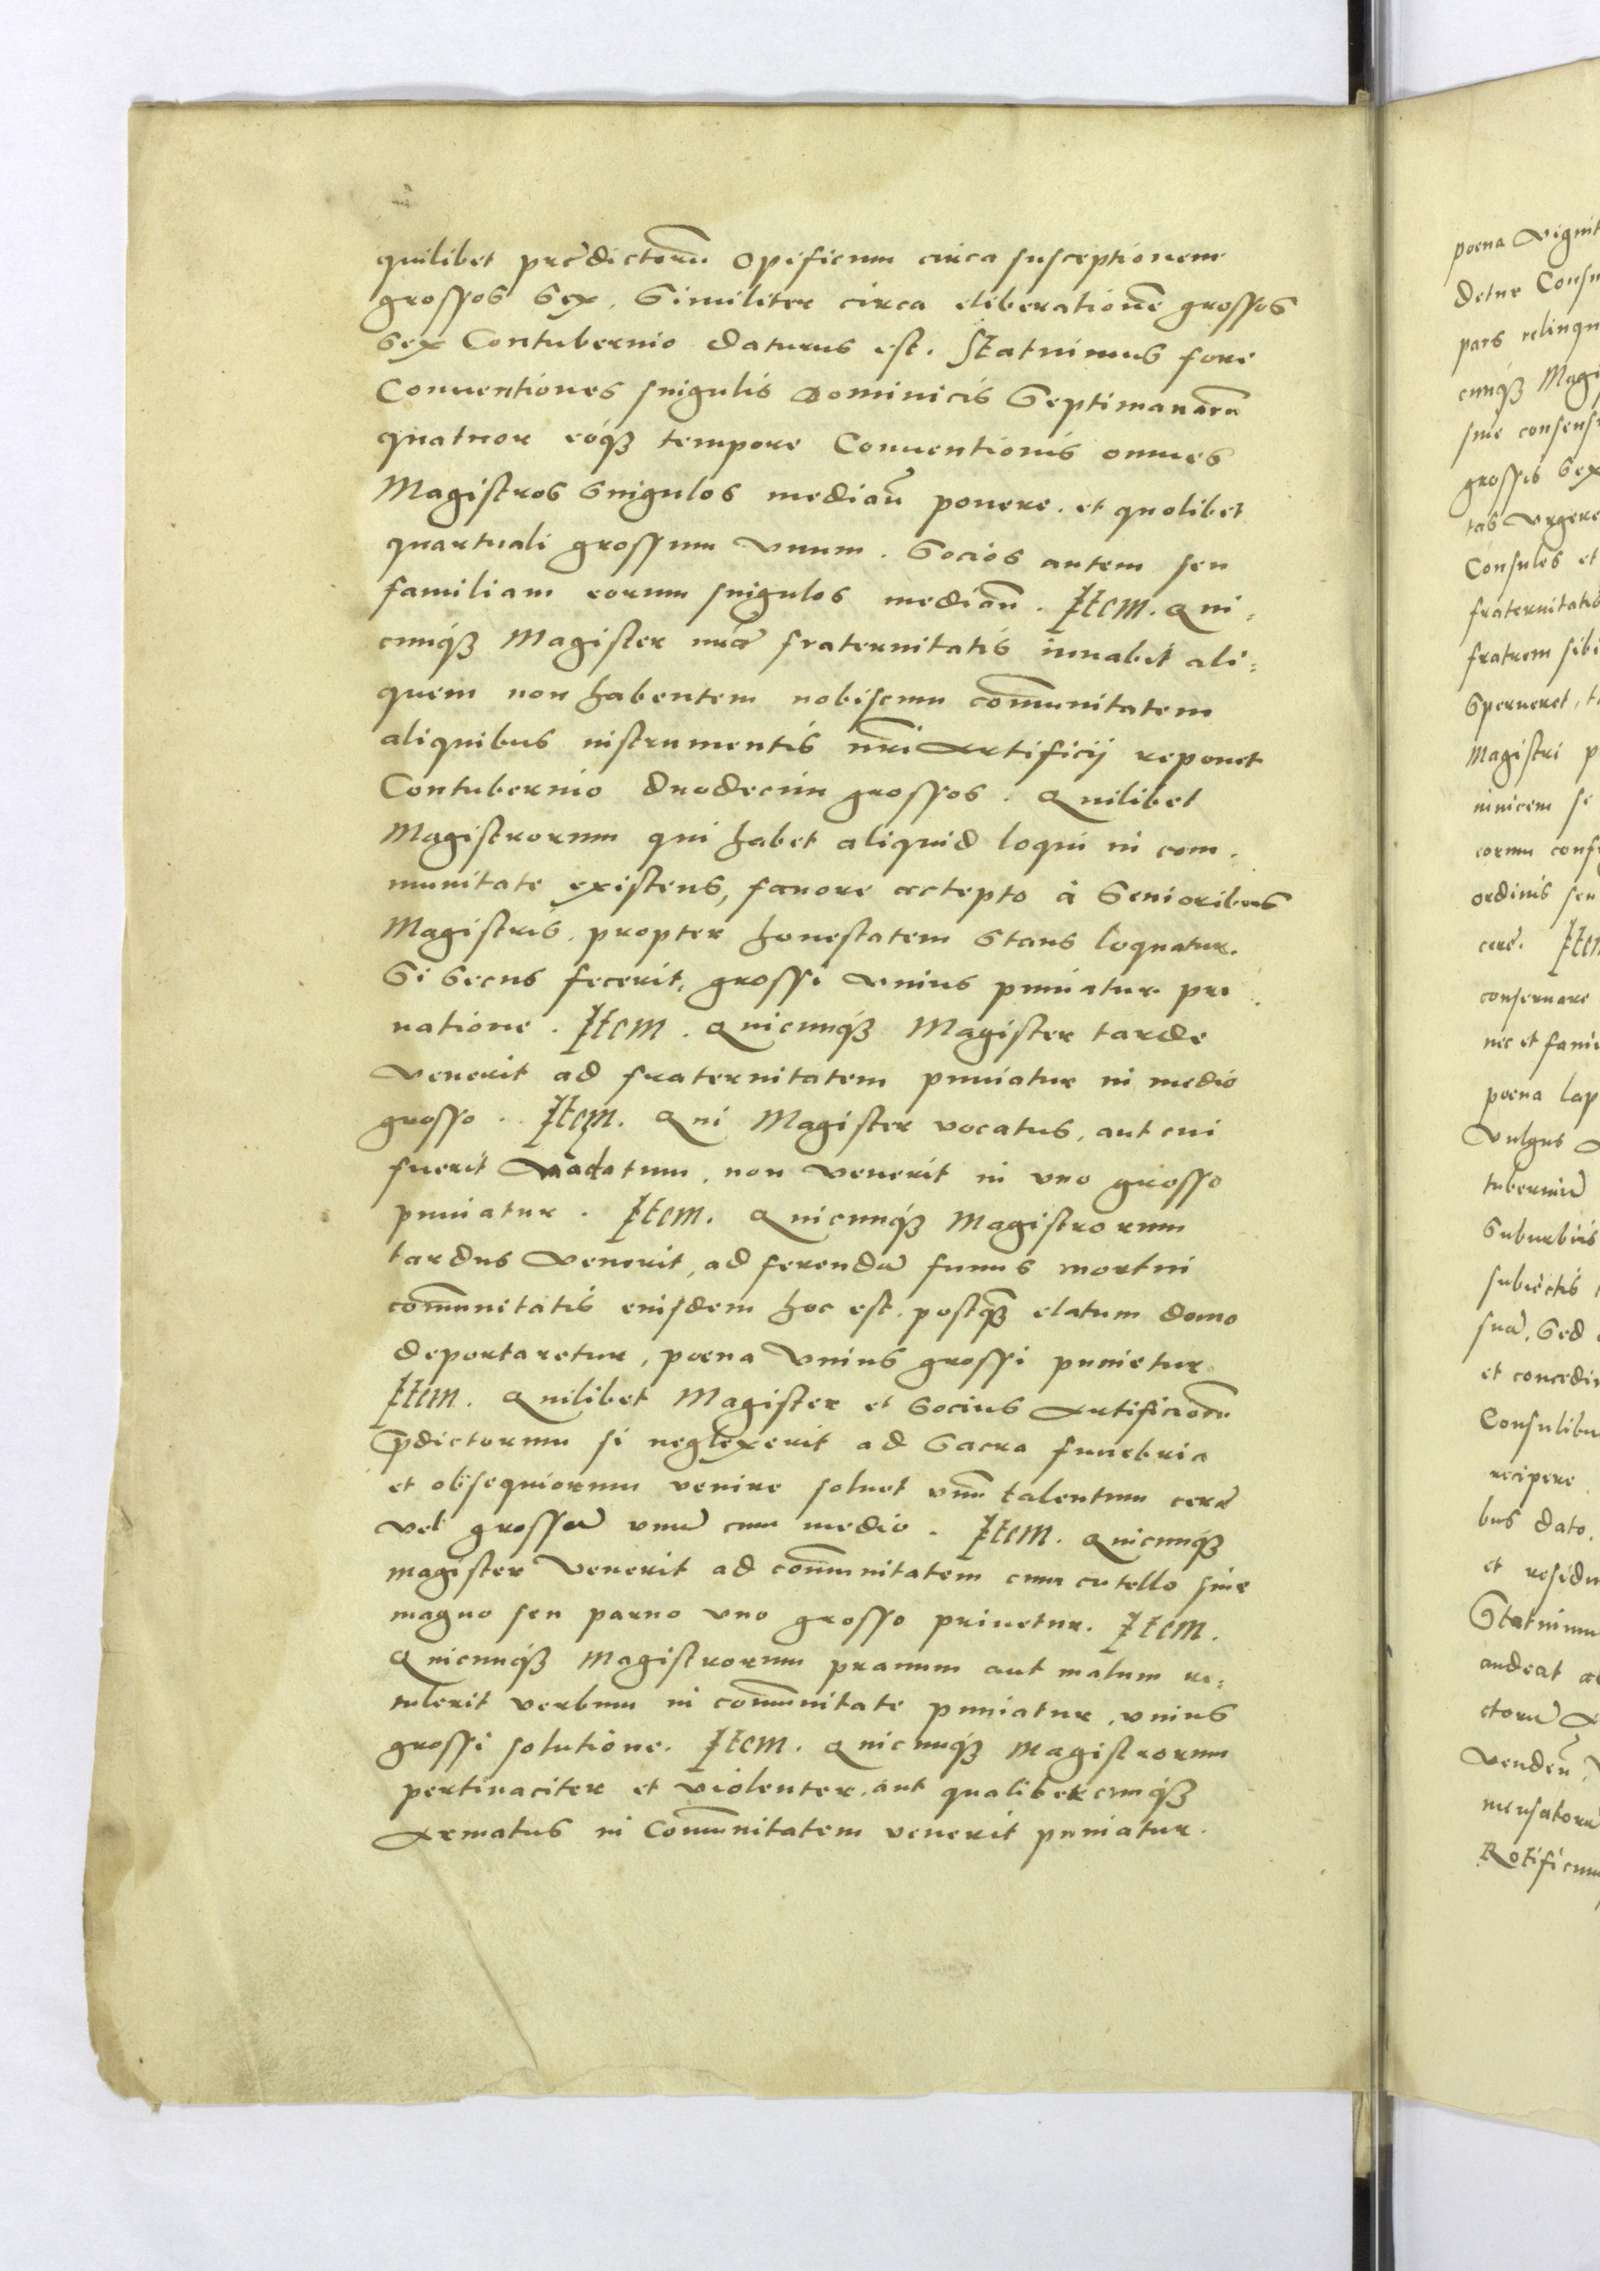 quilibet prædictorũ Opificum circa susceptionem
grossos Sex. Similiter circa eliberationẽ grossos
Sex Contubernio daturus est. Statuimus fore
Conuentiones singulis Dominicis Septimanarũ
quatuor eóqꝫ tempore Conuentionis omnes
Magistros Singulos mediũ ponere. et quolibet
quartuali grossum Vnum. Socios autem seu
familiam eorum singulos mediũ. Item. Qui-
cunqꝫ Magister nræ fraternitatis iuuabit ali-
quem non habentem nobiscum com̃unitatem
aliquibus instrumentis nr̃i Artificij reponet
Contubernio duodecim grossos. Quilibet
Magistrorum qui habet aliquid loqui in com-
munitate existens, fauore accepto à Senioribus
Magistris, propter honestatem Stans loquatur.
Si Secus fecerit, grossi Vnius puniatur pri-
uatione. Item. Quicunqꝫ Magister tarde
Venerit ad fraternitatem puniatur in medio
grosso. Item. Qui Magister vocatus, aut cui
fuerit Madatum, non Venerit in vno grosso
puniatur. Item. Quicunqꝫ Magistrorum
tardus Venerit, ad ferendũ funus mortui
com̃unitatis eiusdem hoc est. postqꝫ elatum domo
deportaretur, poena Vnius grossi punietur
Item. Quilibet Magister et Socius Artificiorũ
p̃dictorum si neglexerit ad Sacra funebria
et obsequiorum venire soluet vnũ talentum ceræ
Vel grossũ vnũ cum medio. Item. Quicunqꝫ
magister Venerit ad com̃unitatem cum cutello siue
magno seu paruo vno grosso priuetur. Item.
Quicunqꝫ Magistrorum prauum aut malum re-
tulerit verbum in com̃unitate puniatur, vnius
grossi solutione. Item. Quicunqꝫ Magistrorum
pertinaciter et violenter, aut qualibetcunqꝫ
Armatus in Com̃unitatem venerit puniatur.
poena Vigint
detur Consu
pars relinqu
cunqꝫ Magi
siue consens
grossis Sex
tas Vrgere
Consules et
fraternitatis
fratrem sibi
Sperneret, t
Magistri p
inuicem se
eorum cons
ordinis seu
cere. Item
conseruare
nec et fami
poena lap
Vulgus
tuberniũ
Suburbiis
subiectis
suã, Sed
et concedi
Consulibu
recipere
bus dato.
et residu
Statuimu
audeat
ctorũ
Venden
mensatorũ
Rotificum